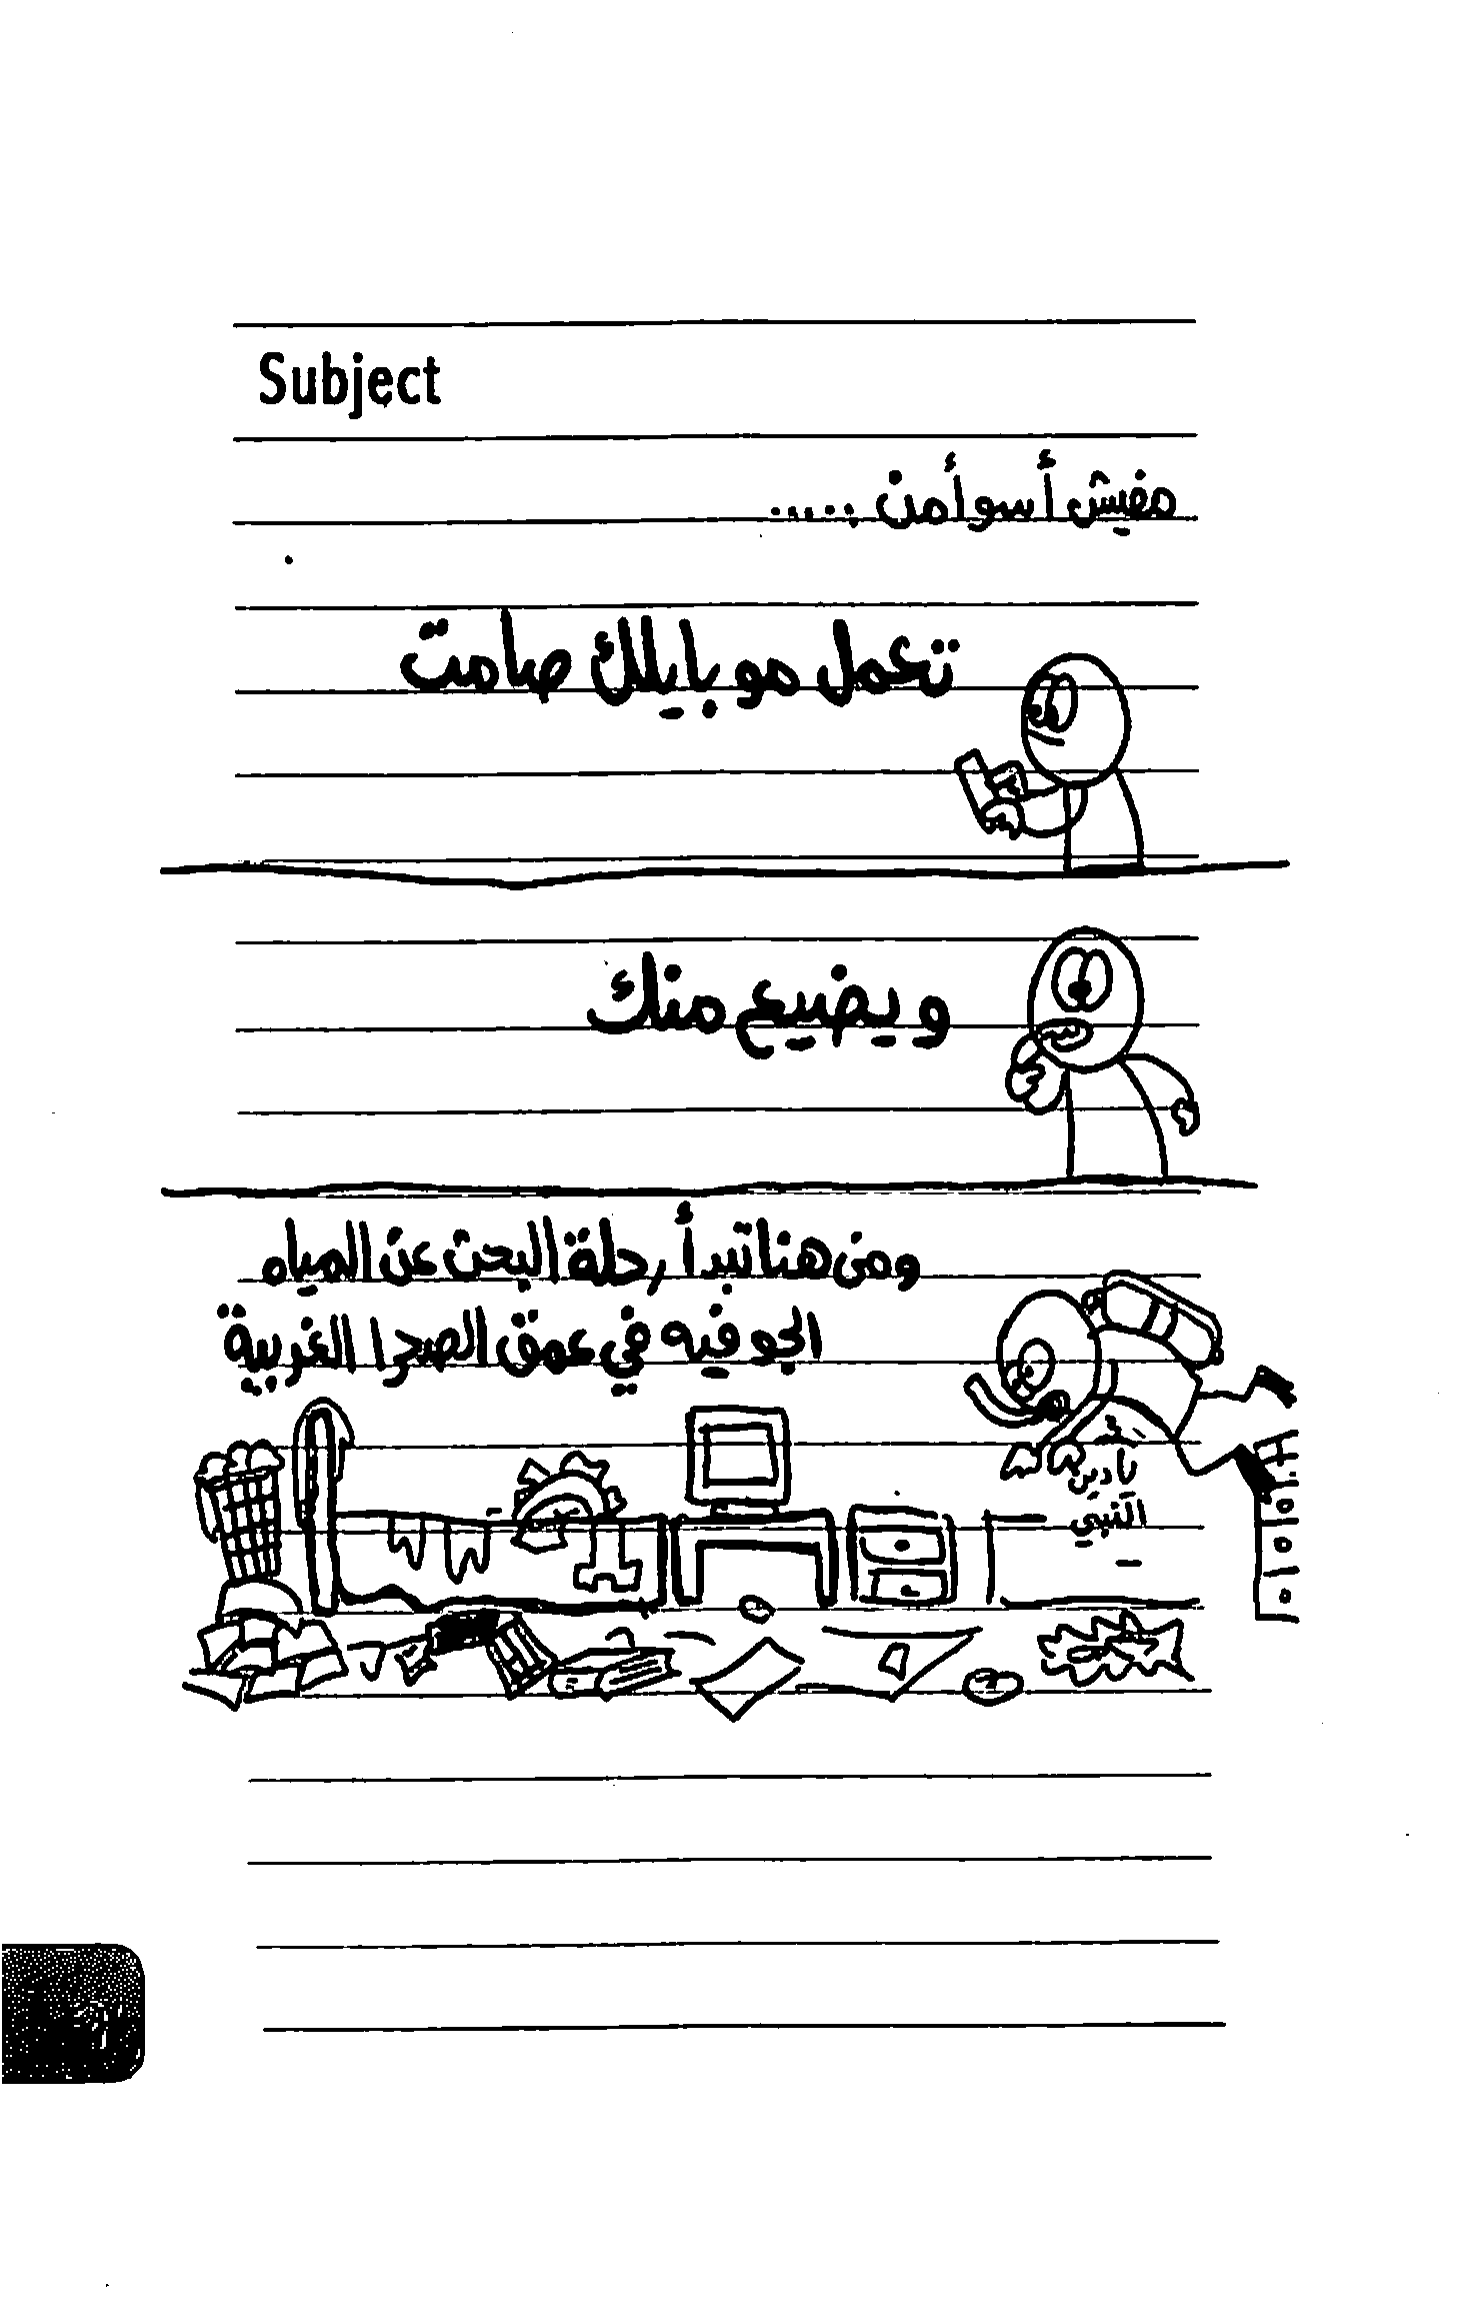 Subject
مفيش أسوأ من .....
تعمل موبايلك صامت
ويضيع منك
ومن هنا تبدأ رحلة البحث عن المياه
الجوفيه في عمق الصحرا الغربية
يا دين
النبي